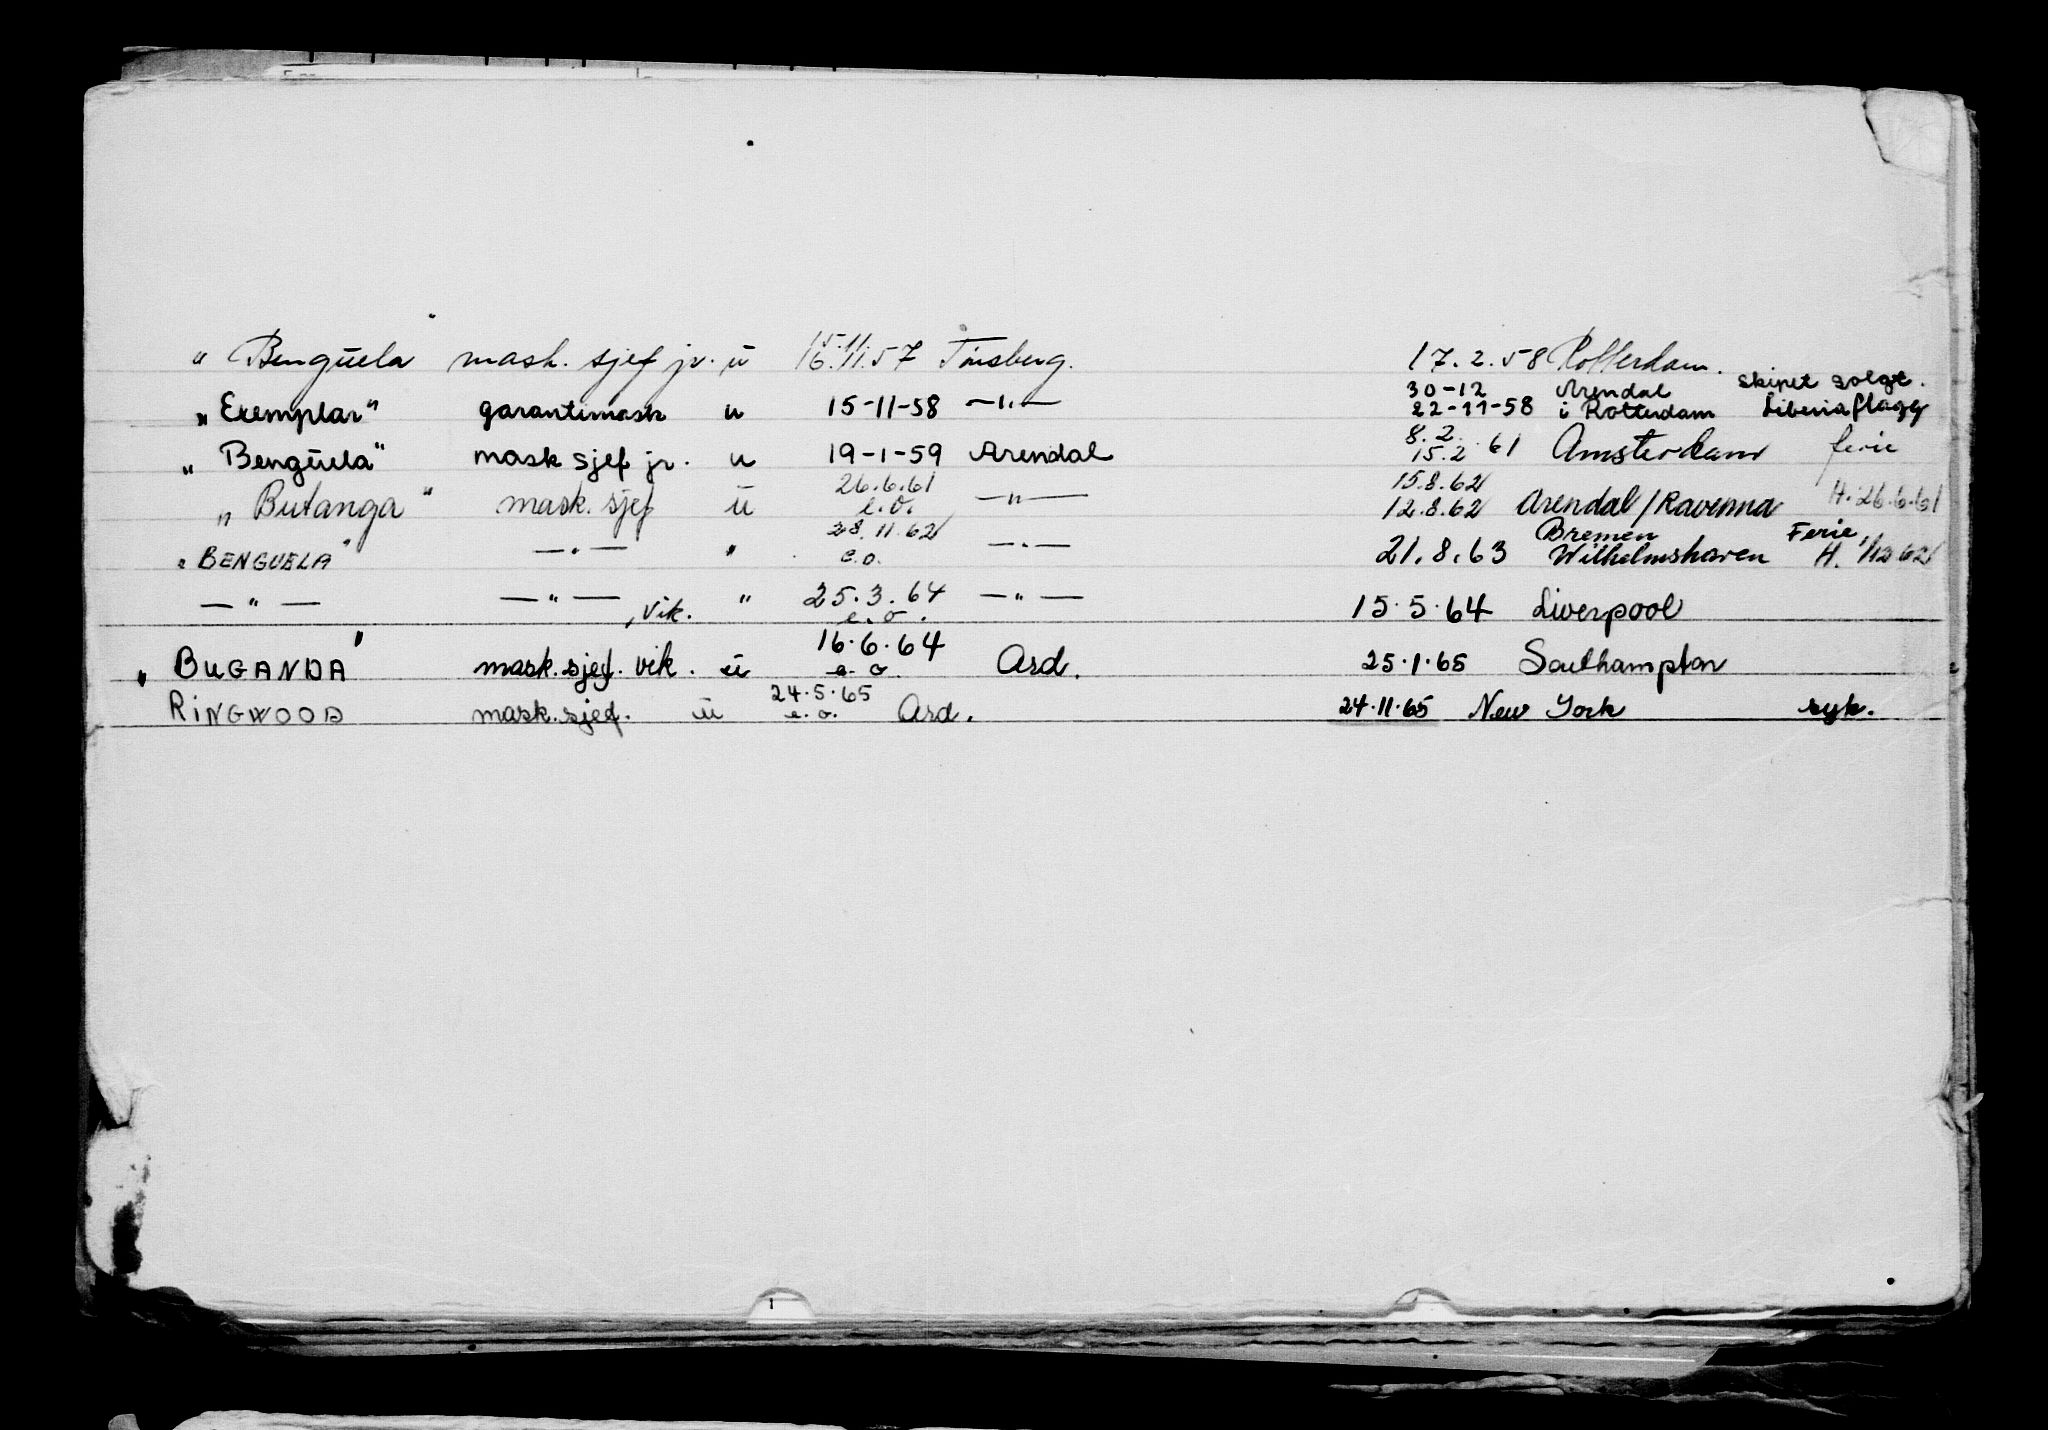 „ Benguela" mask. sjef jr. u 15.11 16.11.57 Tønsberg. 17.2.58 Rotterdam.
„Exemplar" garantimask u 15-11-58 —"— 30-12 Arendal skipet solgt.
22-11-58 i Rotterdam Liberiaflagg
„ Benguela" mask sjef jr. u 19-1-59 Arendal 8.2. 15.2 61 Amsterdam ferie
„ Butanga " mask. sjef u 26.6.61 e.o. —"— 15.8.62 12.8.62 Arendal/Ravenna H. 26.6.61
" BENGUELA" —"— " 28.11.62 e.o. —"— 21.8.63 Bremen Wilhelmshaven Ferie, H. 1/12 62
—"— —"—, vik. " 25.3.64 e.o. —"— 15.5.64 Liverpool
„ BUGANDA" mask.sjef. vik. u 16.6.64 e.o. Ard. 25.1.65 Southampton
RINGWOOD mask.sjef. u 24.5.65 e.o. Ard. 24.11.65 New York syk.